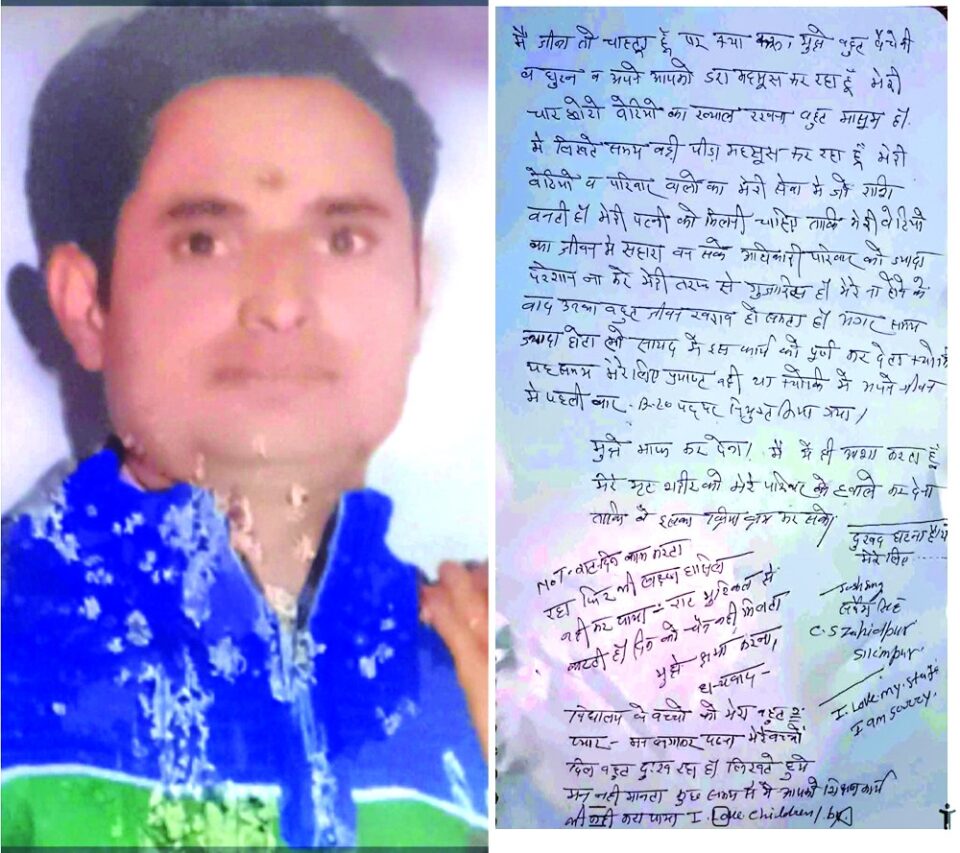 मै जीना तो चाहता हूँ पर क्या करू, मुझे बहुत बैचेनी
व घुटन व अपने आपको डरा महसूस कर रहा हूँ मेरी
चार छोटी बेटियो का ख्याल रखना बहुत मासूम हो
मे लिखते समय बड़ी पीडा महसूस कर रहा हूँ मेरी
बेटियो व परिवार वालो का मेरी सेवा मे जो राशि
बनती हो मेरी पत्नी को मिलनी चाहिए ताकि मेरी बेटियो
का जीवन मे सहारा बन सके अधिकारी परिवार को ज्यादा
परेशान ना करे मेरी तरफ से गुजारिश हो मेरे ना होने के
बाद उनका बहुत जीवन खराब हो सकता हो अगर समय
ज्यादा होता तो सायद मै इस कार्य को पूर्ण कर देता क्योकि
यह समय मेरे लिए प्रयाप्ट नही था क्योकि मे अपने जीवन
मे पहली बार B-LO पद पर नियुक्त किया गया।
मुझे माफ कर देना। मैं ये ही आशा करता हूँ
मेरे मृत शरीर को मेरे परिवार के हवाले कर देना
ताकि वे इसका क्रिया क्रम कर सके।
दुखद घटना है ये
मेरे लिए
NOT-रात दिन काम करता
रहा फिर भी लक्ष्य हासिल
नही कर पाया- रात मुश्किल से
कटती हो दिन को चैन नही मिलता
मुझे क्षमा करना,
धन्यवाद-
C.S Zahidpur
Silimpur
I. Love. my. staff
I am sorry.
विद्यालय के बच्चो को मेरा बहुत २
प्यार- मन लगाकर पढना मेरे बच्चो
दिल बहुत दुःख रहा हो लिखते हुये
मन नही मानता कुछ समय से मै आपको शिक्षण कार्य
भी नही करा पाया I. Love children/ by